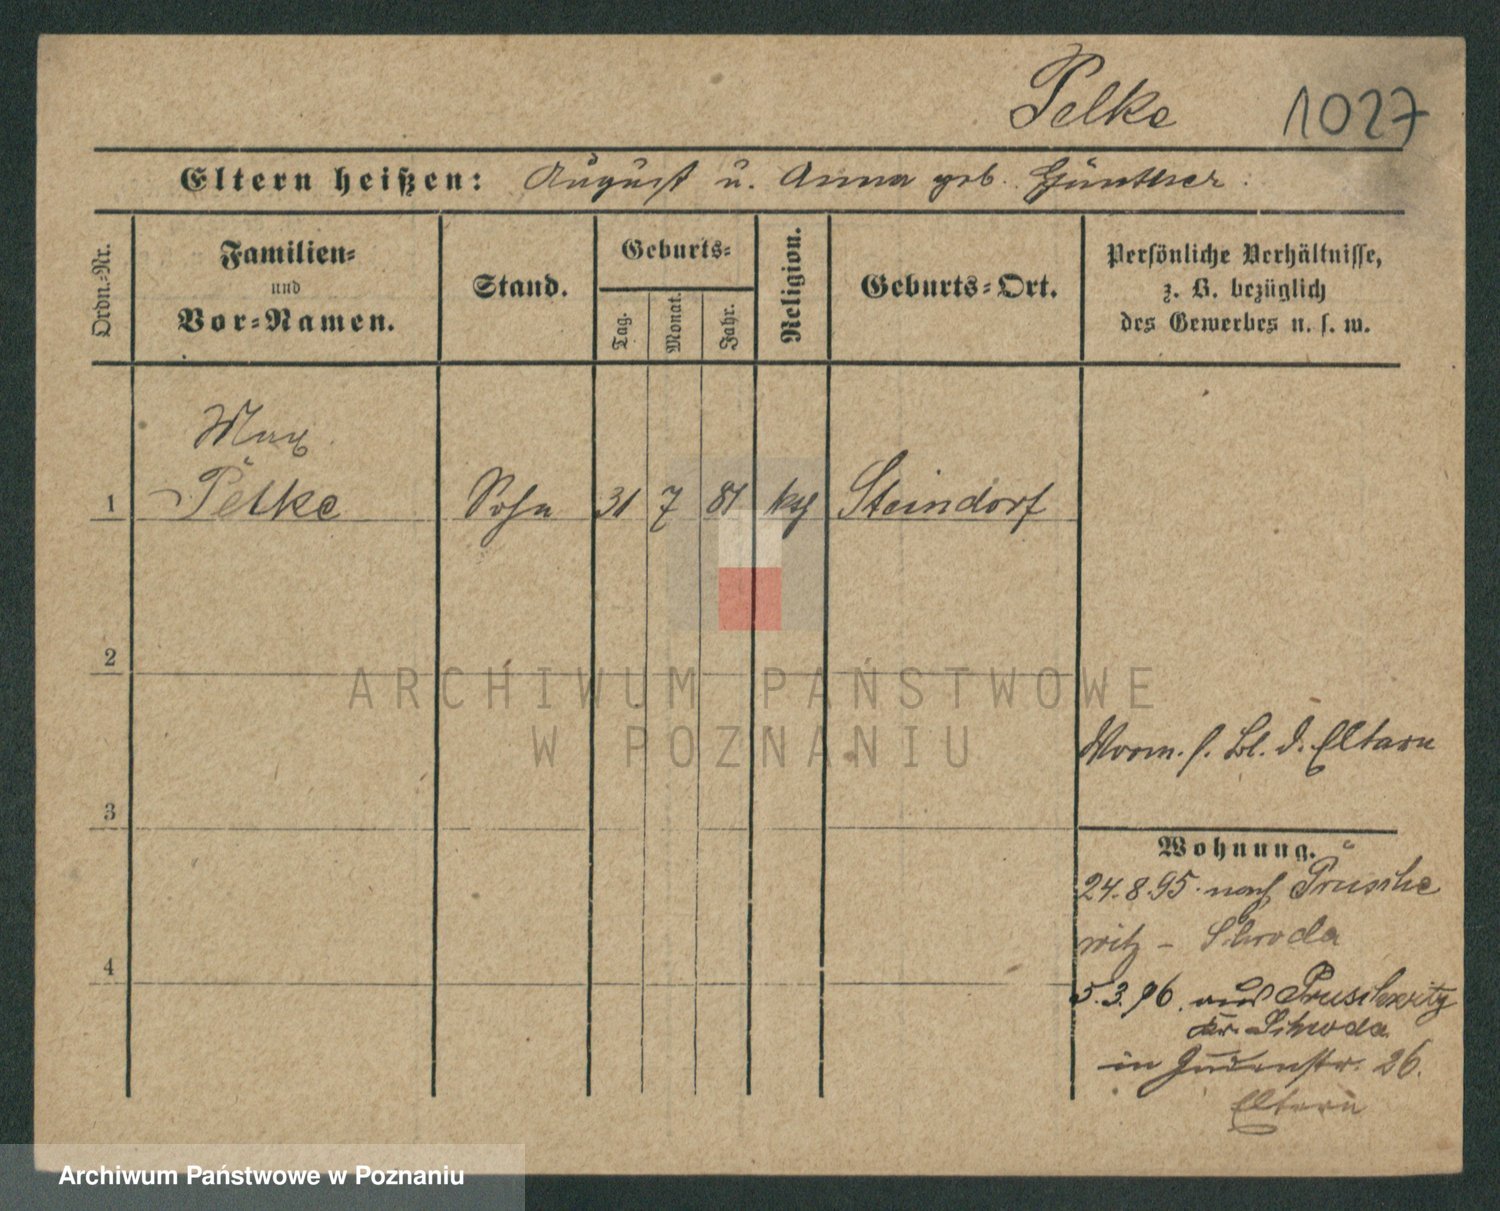 Pelke 1027
Eltern heißen: August u. Anna geb. Günther.
Ordn.-Nr.
Familien-
und
Vor-Namen.
Stand.
Geburts-
Tag.
Monat.
Jahr.
Religion.
Geburts-Ort.
Persönliche Verhältnisse,
z. B. bezüglich
des Gewerbes u. s. w.
Max
1 Pelke Sohn 31 7 81 kth Steindorf
2
ARCHIWUM PAŃSTWOWE
W POZNANIU
Vorm. s. Bl. d. Eltern
3
Wohnung.
24.8.95. nach Prusche
witz - Schroda
4
5.3.96. aus Pruschewitz
Kr. Schroda
in Judenstr. 26.
Eltern
Archiwum Państwowe w Poznaniu